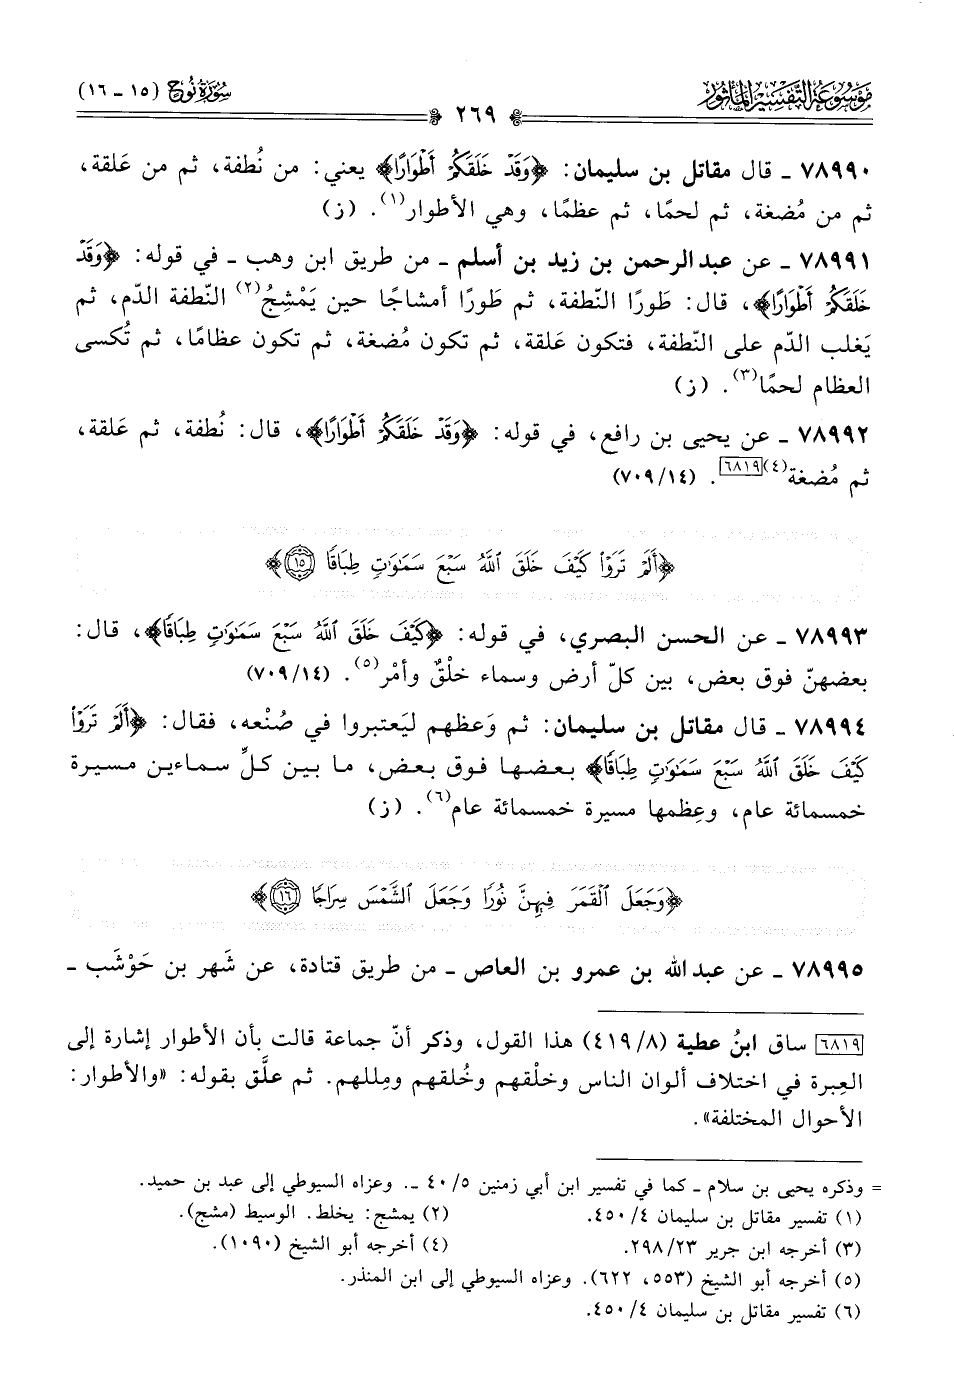 موسوعة التفسير المأثور
سورة نوح (١٥ - ١٦)
٢٦٩
٧٨٩٩٠ - قال مقاتل بن سليمان: ﴿وَقَدْ خَلَقَكُمْ أَطْوَارًا﴾ يعني: من نُطفة، ثم من عَلقة،
ثم من مُضغة، ثم لحمًا، ثم عظمًا، وهي الأطوار(١). (ز)
٧٨٩٩١ - عن عبد الرحمن بن زيد بن أسلم - من طريق ابن وهب - في قوله: ﴿وَقَدْ
خَلَقَكُمْ أَطْوَارًا﴾، قال: طَورًا النّطفة، ثم طَورًا أمشاجًا حين يَمْشِجُ(٢) النّطفة الدّم، ثم
يَغلب الدّم على النّطفة، فتكون عَلقة، ثم تكون مُضغة، ثم تكون عظامًا، ثم تُكسى
العظام لحمًا(٣). (ز)
٧٨٩٩٢ - عن يحيى بن رافع، في قوله: ﴿وَقَدْ خَلَقَكُمْ أَطْوَارًا﴾، قال: نُطفة، ثم عَلقة،
ثم مُضغة(٤)[٦٨١٩]. (٧٠٩/١٤)
﴿أَلَمْ تَرَوْا۟ كَيْفَ خَلَقَ ٱللَّهُ سَبْعَ سَمَٰوَٰتٍ طِبَاقًا ١٥﴾
٧٨٩٩٣ - عن الحسن البصري، في قوله: ﴿كَيْفَ خَلَقَ ٱللَّهُ سَبْعَ سَمَٰوَٰتٍ طِبَاقًا﴾، قال:
بعضهنّ فوق بعض، بين كلّ أرض وسماء خلْقٌ وأمْر(٥). (٧٠٩/١٤)
٧٨٩٩٤ - قال مقاتل بن سليمان: ثم وَعظهم ليَعتبروا في صُنْعه، فقال: ﴿أَلَمْ تَرَوْا۟
كَيْفَ خَلَقَ ٱللَّهُ سَبْعَ سَمَٰوَٰتٍ طِبَاقًا﴾ بعضها فوق بعض، ما بين كلِّ سماءين مسيرة
خمسمائة عام، وعِظمها مسيرة خمسمائة عام(٦). (ز)
﴿وَجَعَلَ ٱلْقَمَرَ فِيهِنَّ نُورًا وَجَعَلَ ٱلشَّمْسَ سِرَاجًا ١٦﴾
٧٨٩٩٥ - عن عبد الله بن عمرو بن العاص - من طريق قتادة، عن شَهر بن حَوْشَب -
[٦٨١٩] ساق ابنُ عطية (٤١٩/٨) هذا القول، وذكر أنّ جماعة قالت بأن الأطوار إشارة إلى
العِبرة في اختلاف ألوان الناس وخلْقهم وخُلقهم ومِللهم. ثم علّق بقوله: «والأطوار:
الأحوال المختلفة».
= وذكره يحيى بن سلام - كما في تفسير ابن أبي زمنين ٤٠/٥ -. وعزاه السيوطي إلى عبد بن حميد.
(١) تفسير مقاتل بن سليمان ٤٥٠/٤.
(٢) يمشج: يخلط. الوسيط (مشج).
(٣) أخرجه ابن جرير ٢٩٨/٢٣.
(٤) أخرجه أبو الشيخ (١٠٩٠).
(٥) أخرجه أبو الشيخ (٥٥٣، ٦٢٢). وعزاه السيوطي إلى ابن المنذر.
(٦) تفسير مقاتل بن سليمان ٤٥٠/٤.